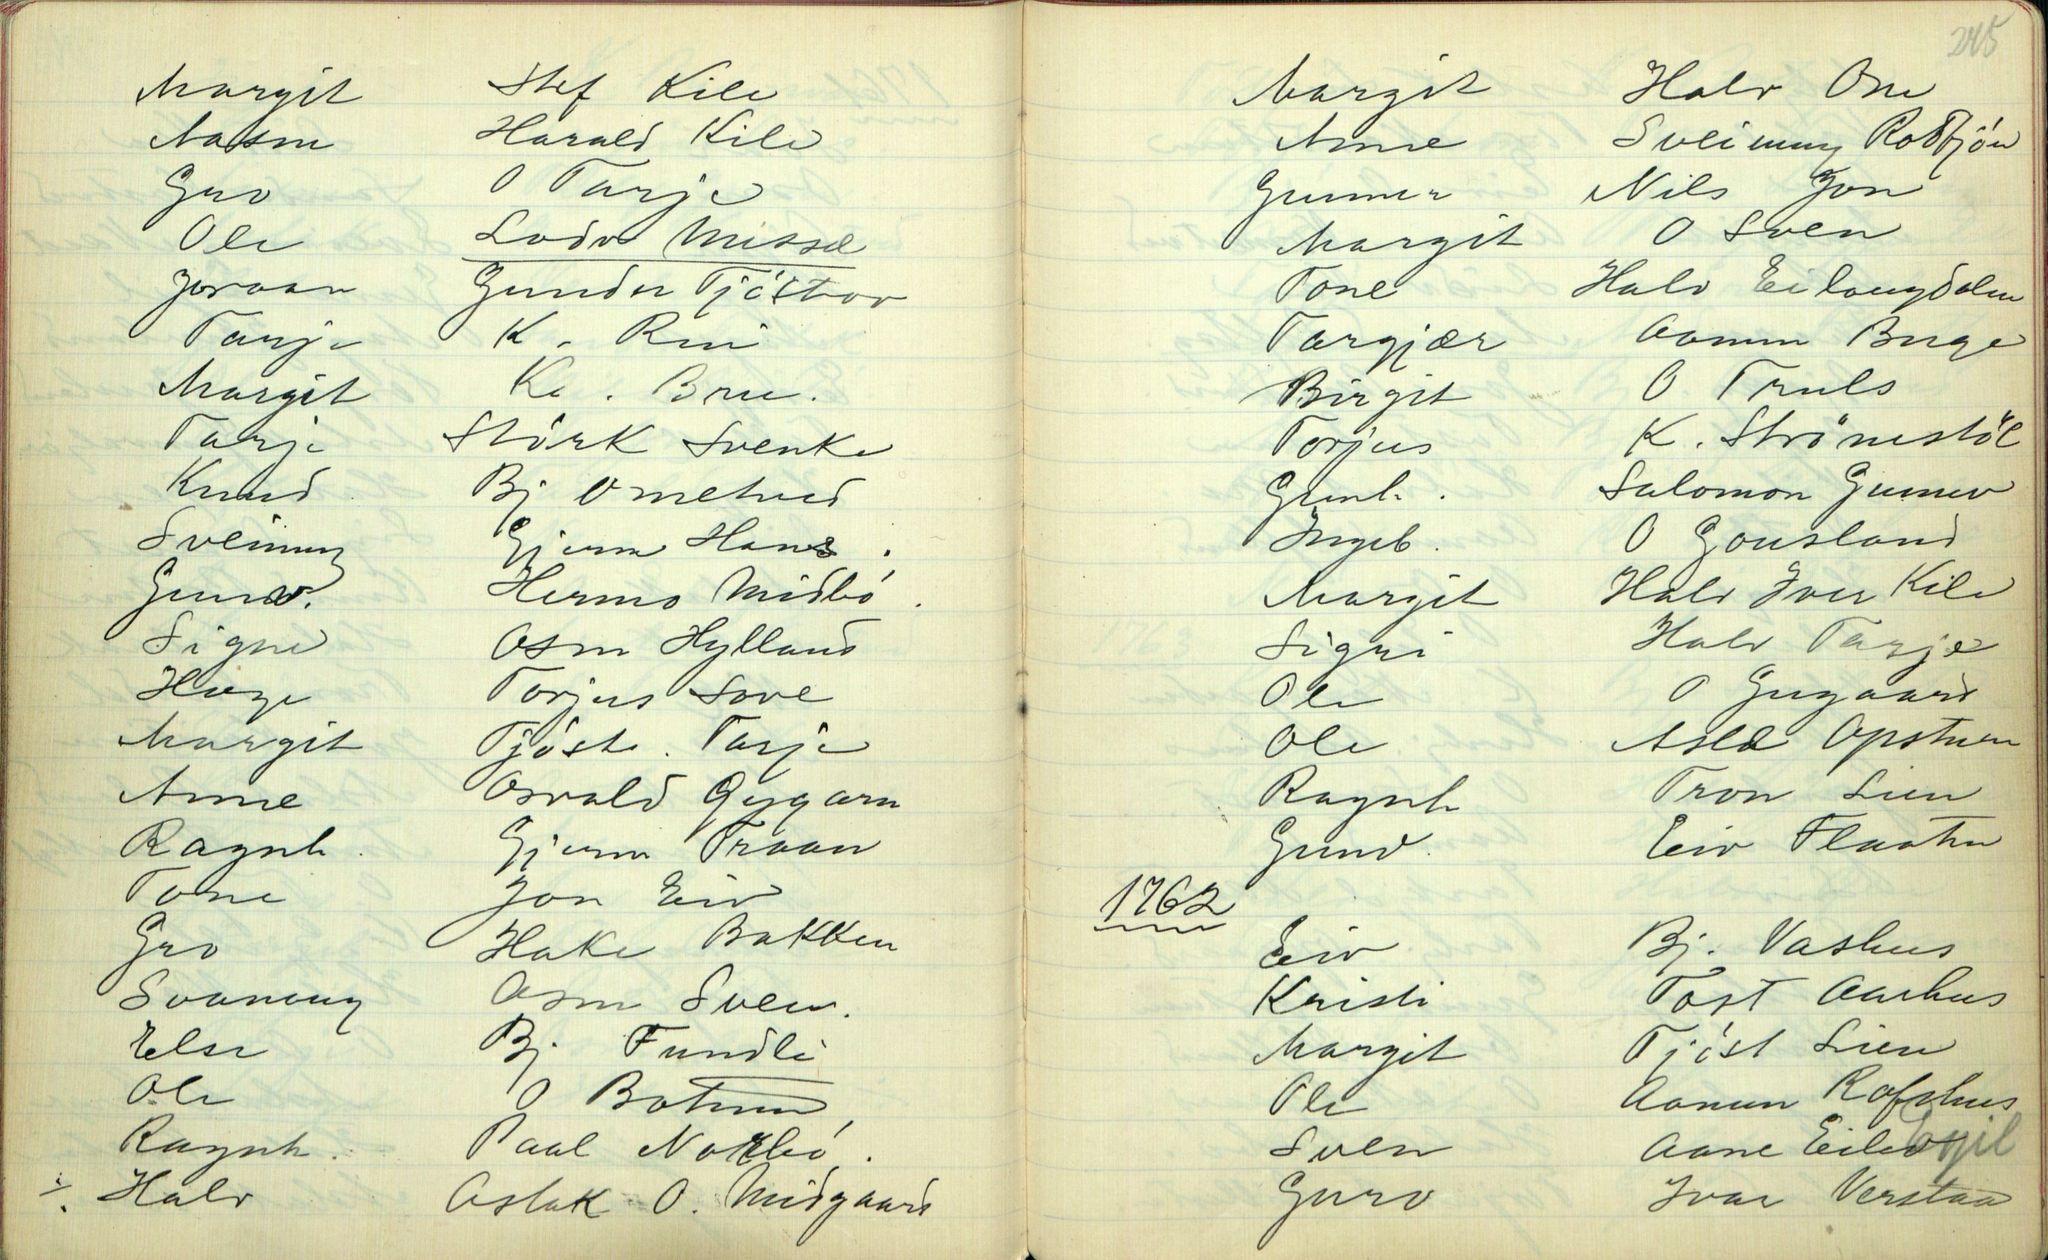 Margit Stef Kile
Aasne Harald Kile
Gro O Tarje
Ole Lodv Missel
Joraan Gunder Tjöstov
Tarje K. Rui
Margit Kr. Brue.
Tarje Störk Svenke
Knud Bj Ometved
Sveinung Gjerm Hans.
Gunv. Hermo Midbö.
Signe Osm Hylland
Hæge Torjus Sove
Margit Tjöst. Tarje
Anne Osvald Gygarn
Ragnh. Gjerm Traan
Tone Jon Eiv
Gro Hake Bakken
Svanaug Osm Sven.
Else Bj. Fundli
Ole O Botnen
Ragnh. Paal Norbö.
Halv Aslak O. Midgaard
245
Margit Halv One
Anne Sveinung Rotbjön
Gunner Nils Jon
Margit O Sven
Tone Halv Eilaugdalen
Targjær Aanun Buge
Birgit O Truls
Torjus K. Strönestöl
Gunh. Salomon Gunnu
Ingeb. O Gousland
Margit Halv Iver Kile
Sigri Halv Tarje
Ole O Gugaard
Ole Asld Opstuen
Ragnh Tron Lien
Gunv. Eiv Flaaten
1762
Eiv Bj. Vashus
Kristi Tost Aarhus
Margit Tjöst Lien
Ole Aanun Rofshus
Sven Aane Eilev Egil
Guro Ivar Verstaa